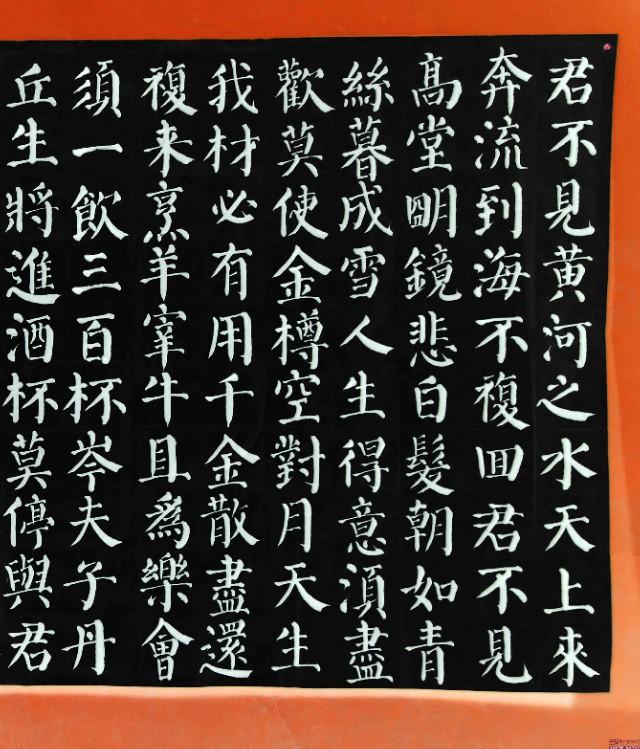 君不見黄河之水天上來
奔流到海不複囬君不見
髙堂朙鏡悲白髮朝如青
絲暮成雪人生得意湏盡
歡莫使金樽空對月天生
我材必有用千金散盡還
複来烹羊宰牛且爲樂會
須一飲三百杯岑夫子丹
丘生將進酒杯莫停與君